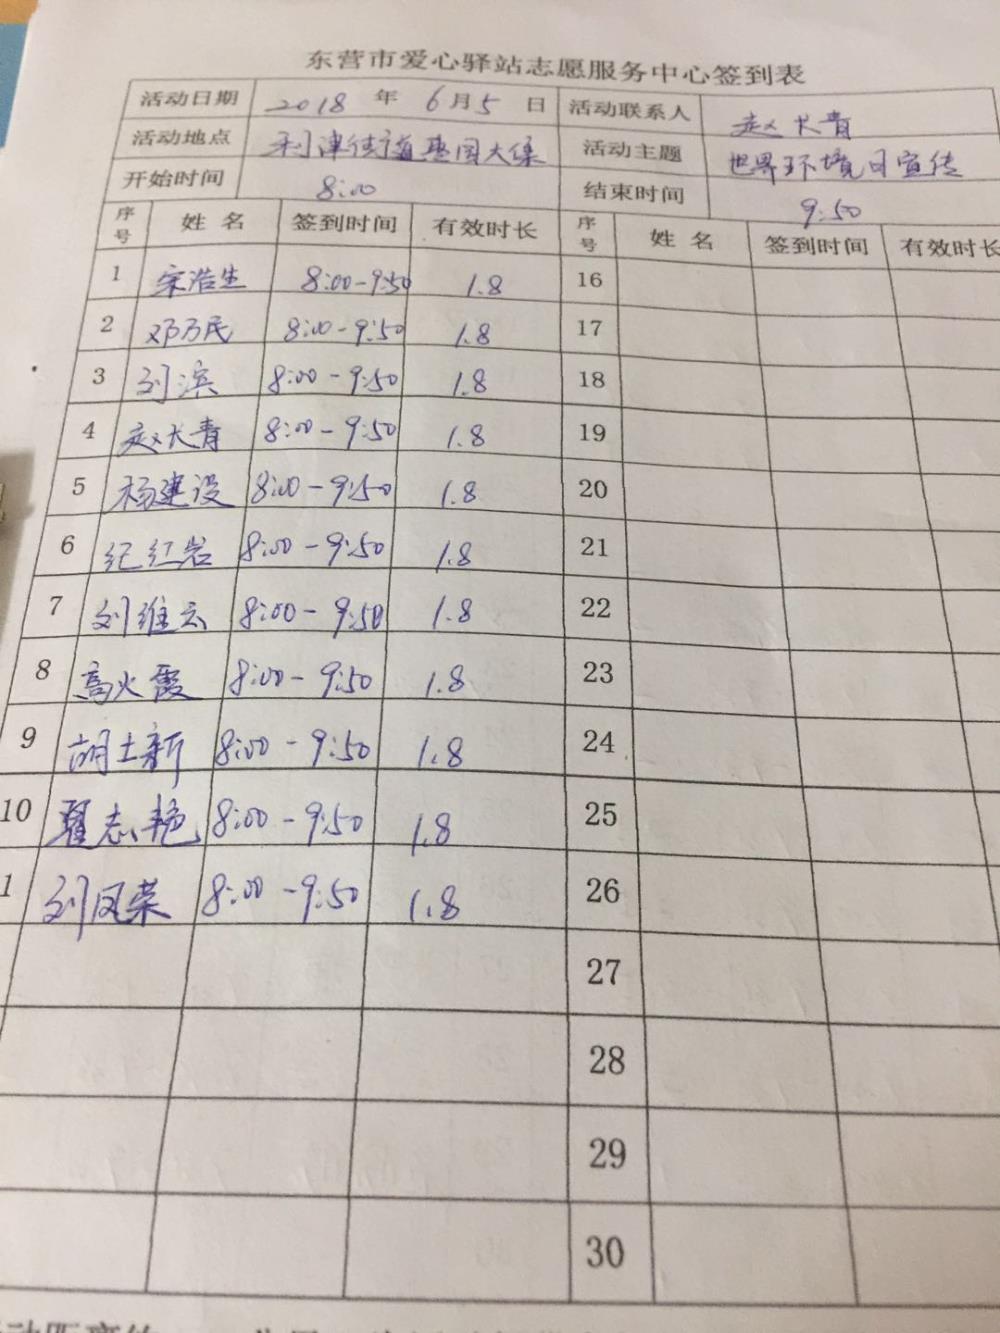 东营市爱心驿站志愿服务中心签到表
活动日期 2018 年 6月5 日 活动联系人 赵长青
活动地点 利津街道惠园大集 活动主题 世界环境日宣传
开始时间 8:00 结束时间 9:50
序号 姓名 签到时间 有效时长 序号 姓名 签到时间 有效时长
1 宋浩生 8:00-9:50 1.8 16
2 邓万民 8:00-9:50 1.8 17
3 刘滨 8:00-9:50 1.8 18
4 赵长青 8:00-9:50 1.8 19
5 杨建设 8:00-9:50 1.8 20
6 纪红岩 8:00-9:50 1.8 21
7 刘维云 8:00-9:50 1.8 22
8 高火霞 8:00-9:50 1.8 23
9 胡土新 8:00-9:50 1.8 24
10 翟志艳 8:00-9:50 1.8 25
1 刘凤荣 8:00-9:50 1.8 26
27
28
29
30